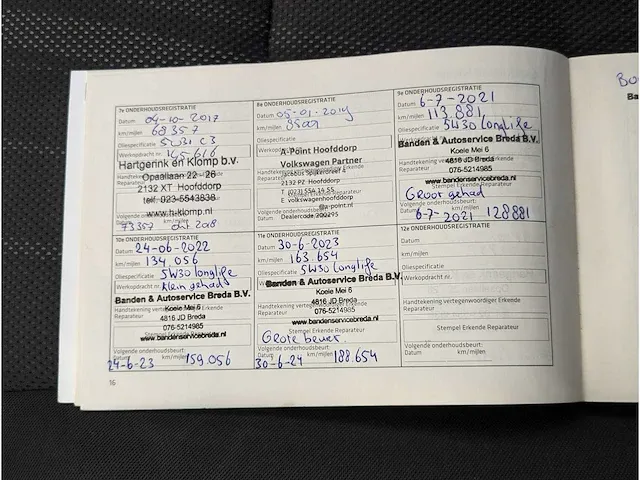 7e ONDERHOUDSREGISTRATIE
Datum 04-10-2017
km/mijlen 68357
Oliespecificatie 5W31 C3
Werkopdracht nr.
Hartgerink en Klomp b.v.
Opaallaan 22 - 26
2132 XT Hoofddorp
telf. 023-5543838
www.h-klomp.nl
73357 okt 2018
8e ONDERHOUDSREGISTRATIE
Datum 05-01-2019
km/mijlen
Oliespecificatie
A-Point Hoofddorp
Volkswagen Partner
Jacobus Spijkerdreef 4
2132 PZ Hoofddorp
T (023) 556 34 55
E volkswagenhoofddorp
@a-point.nl
Dealercode 200295
9e ONDERHOUDSREGISTRATIE
Datum 6-7-2021
km/mijlen 113.881
Oliespecificatie 5W30 Longlife
Banden & Autoservice Breda B.V.
Koele Mei 6
4816 JD Breda
076-5214985
www.bandenservicebreda.nl
Groot gehad
Volgende onderhoudsbeurt:
6-7-2021 128881
10e ONDERHOUDSREGISTRATIE
Datum 24-06-2022
km/mijlen 134.056
Oliespecificatie 5W30 Longlife
Werkopdracht nr. klein gehad
Banden & Autoservice Breda B.V.
Koele Mei 6
4816 JD Breda
076-5214985
www.bandenservicebreda.nl
Volgende onderhoudsbeurt:
Datum km/mijlen
24-6-23 159.056
11e ONDERHOUDSREGISTRATIE
Datum 30-6-2023
km/mijlen 163.654
Oliespecificatie 5W30 Longlife
Banden & Autoservice Breda B.V.
Koele Mei 6
4816 JD Breda
076-5214985
www.bandenservicebreda.nl
Stempel Erkende Reparateur
Grote beurt
Volgende onderhoudsbeurt:
Datum km/mijlen
30-6-24 188.654
12e ONDERHOUDSREGISTRATIE
Datum
km/mijlen
Oliespecificatie
Werkopdracht nr.
Handtekening vertegenwoordiger Erkende
Reparateur
Stempel Erkende Reparateur
Volgende onderhoudsbeurt:
Datum km/mijlen
16